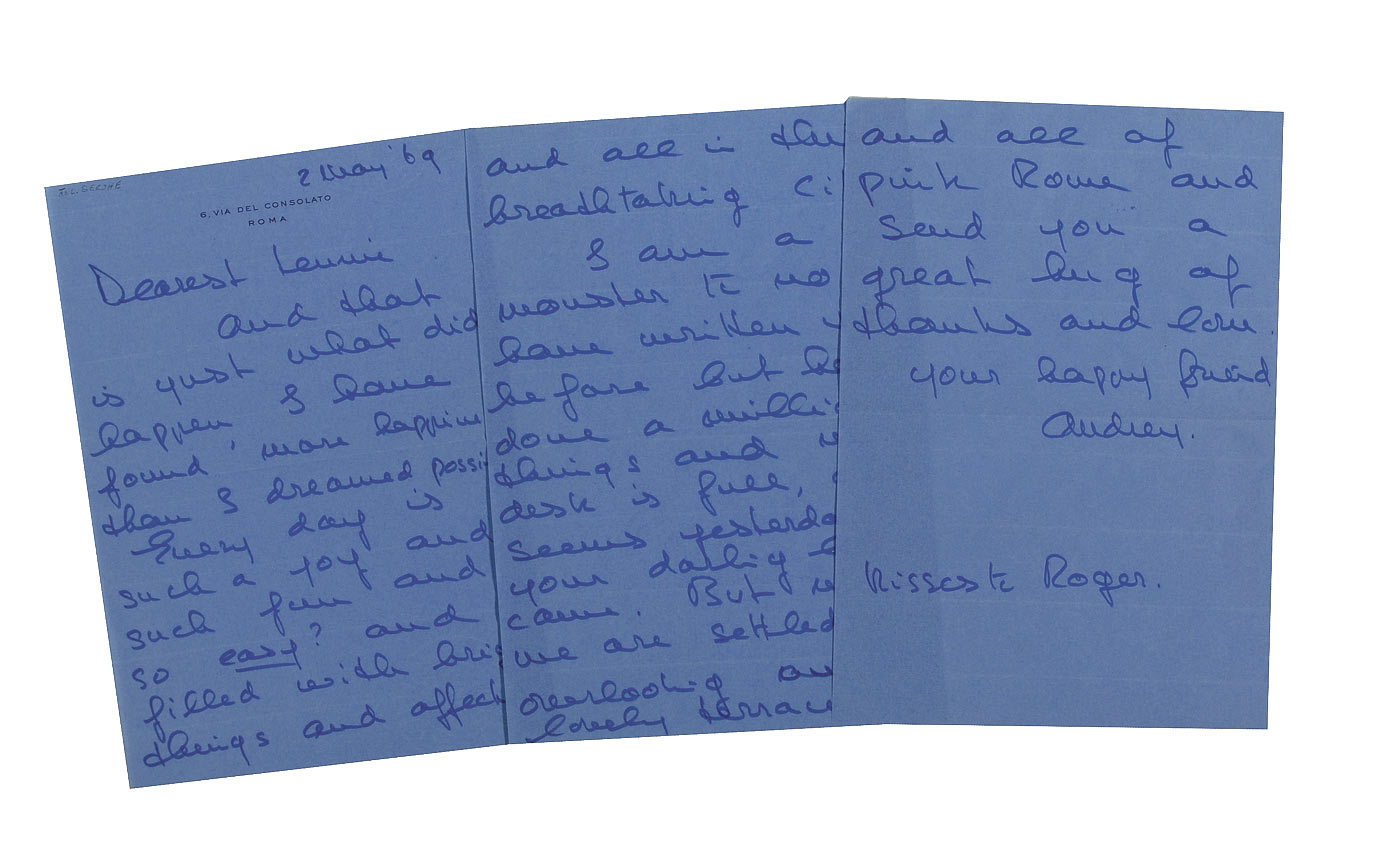 2 May '69
6, VIA DEL CONSOLATO
ROMA
Dearest Lennie
and that
is just what did
happen, I have
found more happine
than I dreamed possi
Every day is
such a joy and
such fun and
so easy? and
filled with
things and affect
and all in
breathtaking ci
I am a
monster to no
have written
before but
done a milli
things and
desk is full,
seems yesterda
your darling
came. But
we are settled
overlooking
lovely terrace
and all of
pink Rome and
send you a
great hug of
thanks and love.
your happy friend
Audrey.
Kisses to Roger.